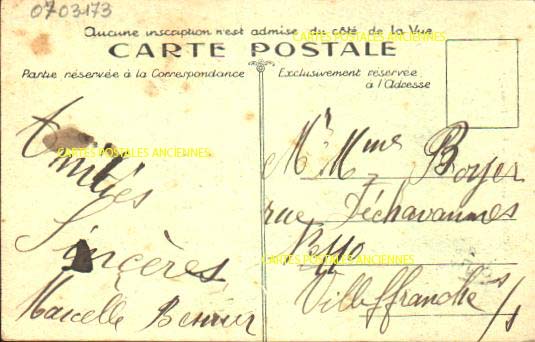 0703173
Aucune inscription n'est admise du côté de la Vue
CARTES POSTALES ANCIENNES
CARTE POSTALE
Partie réservée à la Correspondance
Exclusivement réservée
à l'Adresse
CARTES POSTALES ANCIENNES
Amitiés
Sincères
Marcelle
Mr Mme Boyer
rue Déchavannes
CARTES POSTALES ANCIENNES
Villeffranche s/s